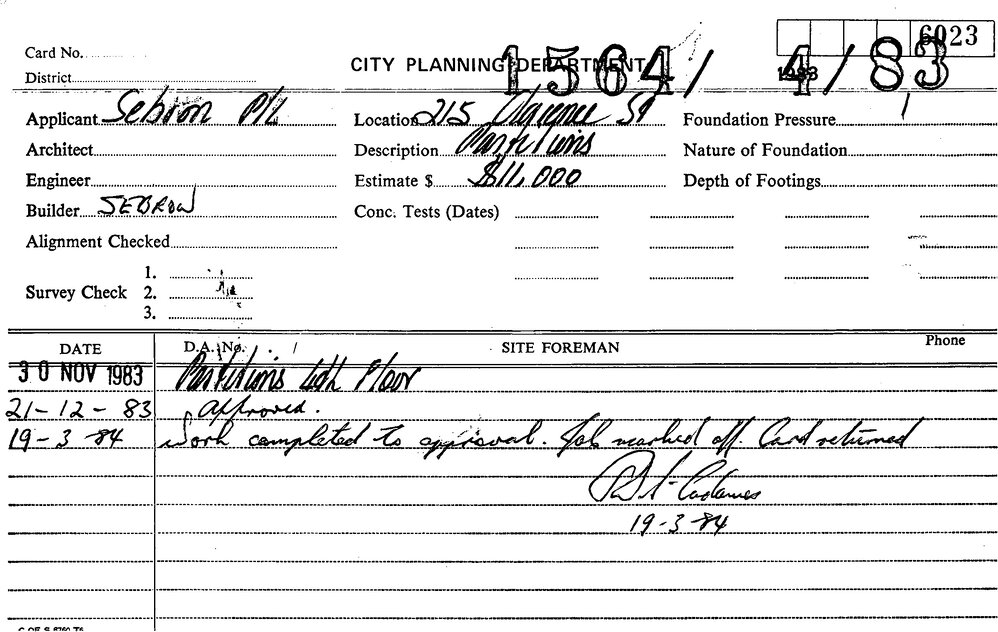 6023
Card No.
CITY PLANNING DEPARTMENT 1564/ 4/83
District
Applicant Sebron P/L Location 215 Clarence St Foundation Pressure
Architect Description Partitions Nature of Foundation
Engineer Estimate $ $11,000 Depth of Footings
Builder SEBRON Conc. Tests (Dates)
Alignment Checked
1.
Survey Check 2.
3.
DATE D.A. No. SITE FOREMAN Phone
30 NOV 1983 Partitions 4th Floor
21-12-83 Approved.
19-3-84 Work completed to approval. Job marked off. Card returned
19-3-84